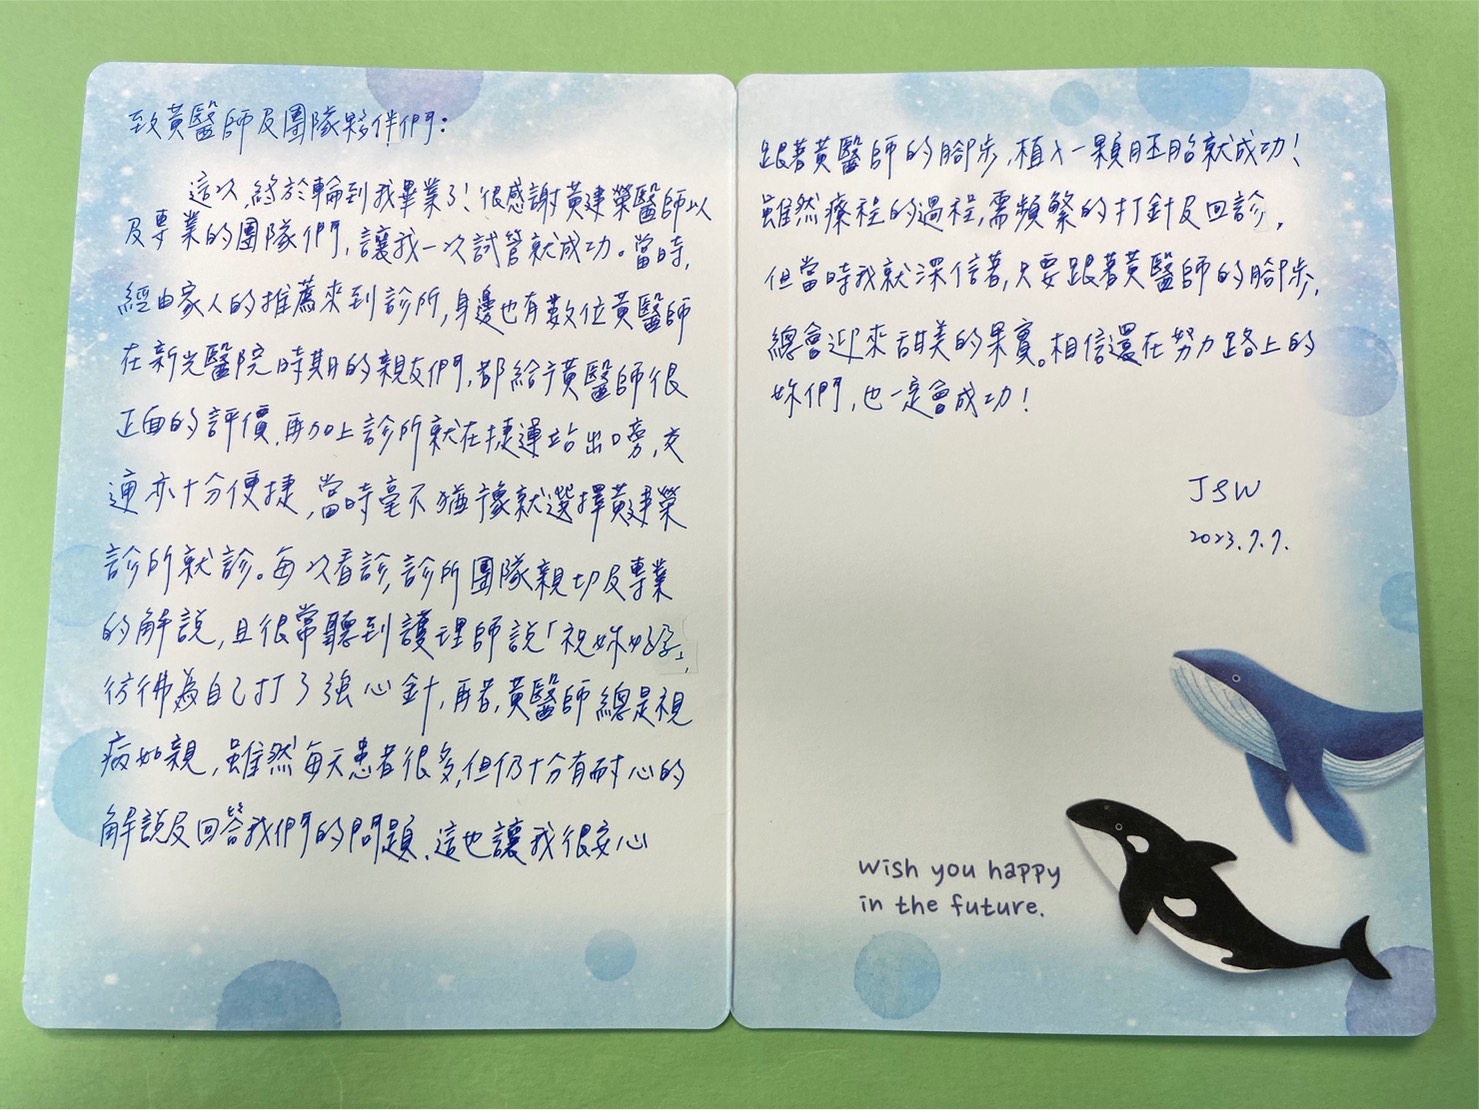 致黃醫師及團隊夥伴們：
這次，終於輪到我畢業了！很感謝黃建榮醫師以
及專業的團隊們，讓我一次試管就成功。當時，
經由家人的推薦來到診所，身邊也有數位黃醫師
在新光醫院時期的親友們，都給予黃醫師很
正面的評價，再加上診所就在捷運站出口旁，交
通亦十分便捷，當時毫不猶豫就選擇黃建榮
診所就診。每次看診，診所團隊親切及專業
的解說，且很常聽到護理師說「祝妳好孕」，
彷彿為自己打了強心針，再者，黃醫師總是視
病如親，雖然每天患者很多，但仍十分有耐心的
解說及回答我們的問題，這也讓我很安心
跟著黃醫師的腳步，植入一顆胚胎就成功！
雖然療程的過程，需頻繁的打針及回診，
但當時我就深信著，只要跟著黃醫師的腳步，
總會迎來甜美的果實。相信還在努力路上的
妳們，也一定會成功！
JSW
2023.7.7.
Wish you happy
in the future.